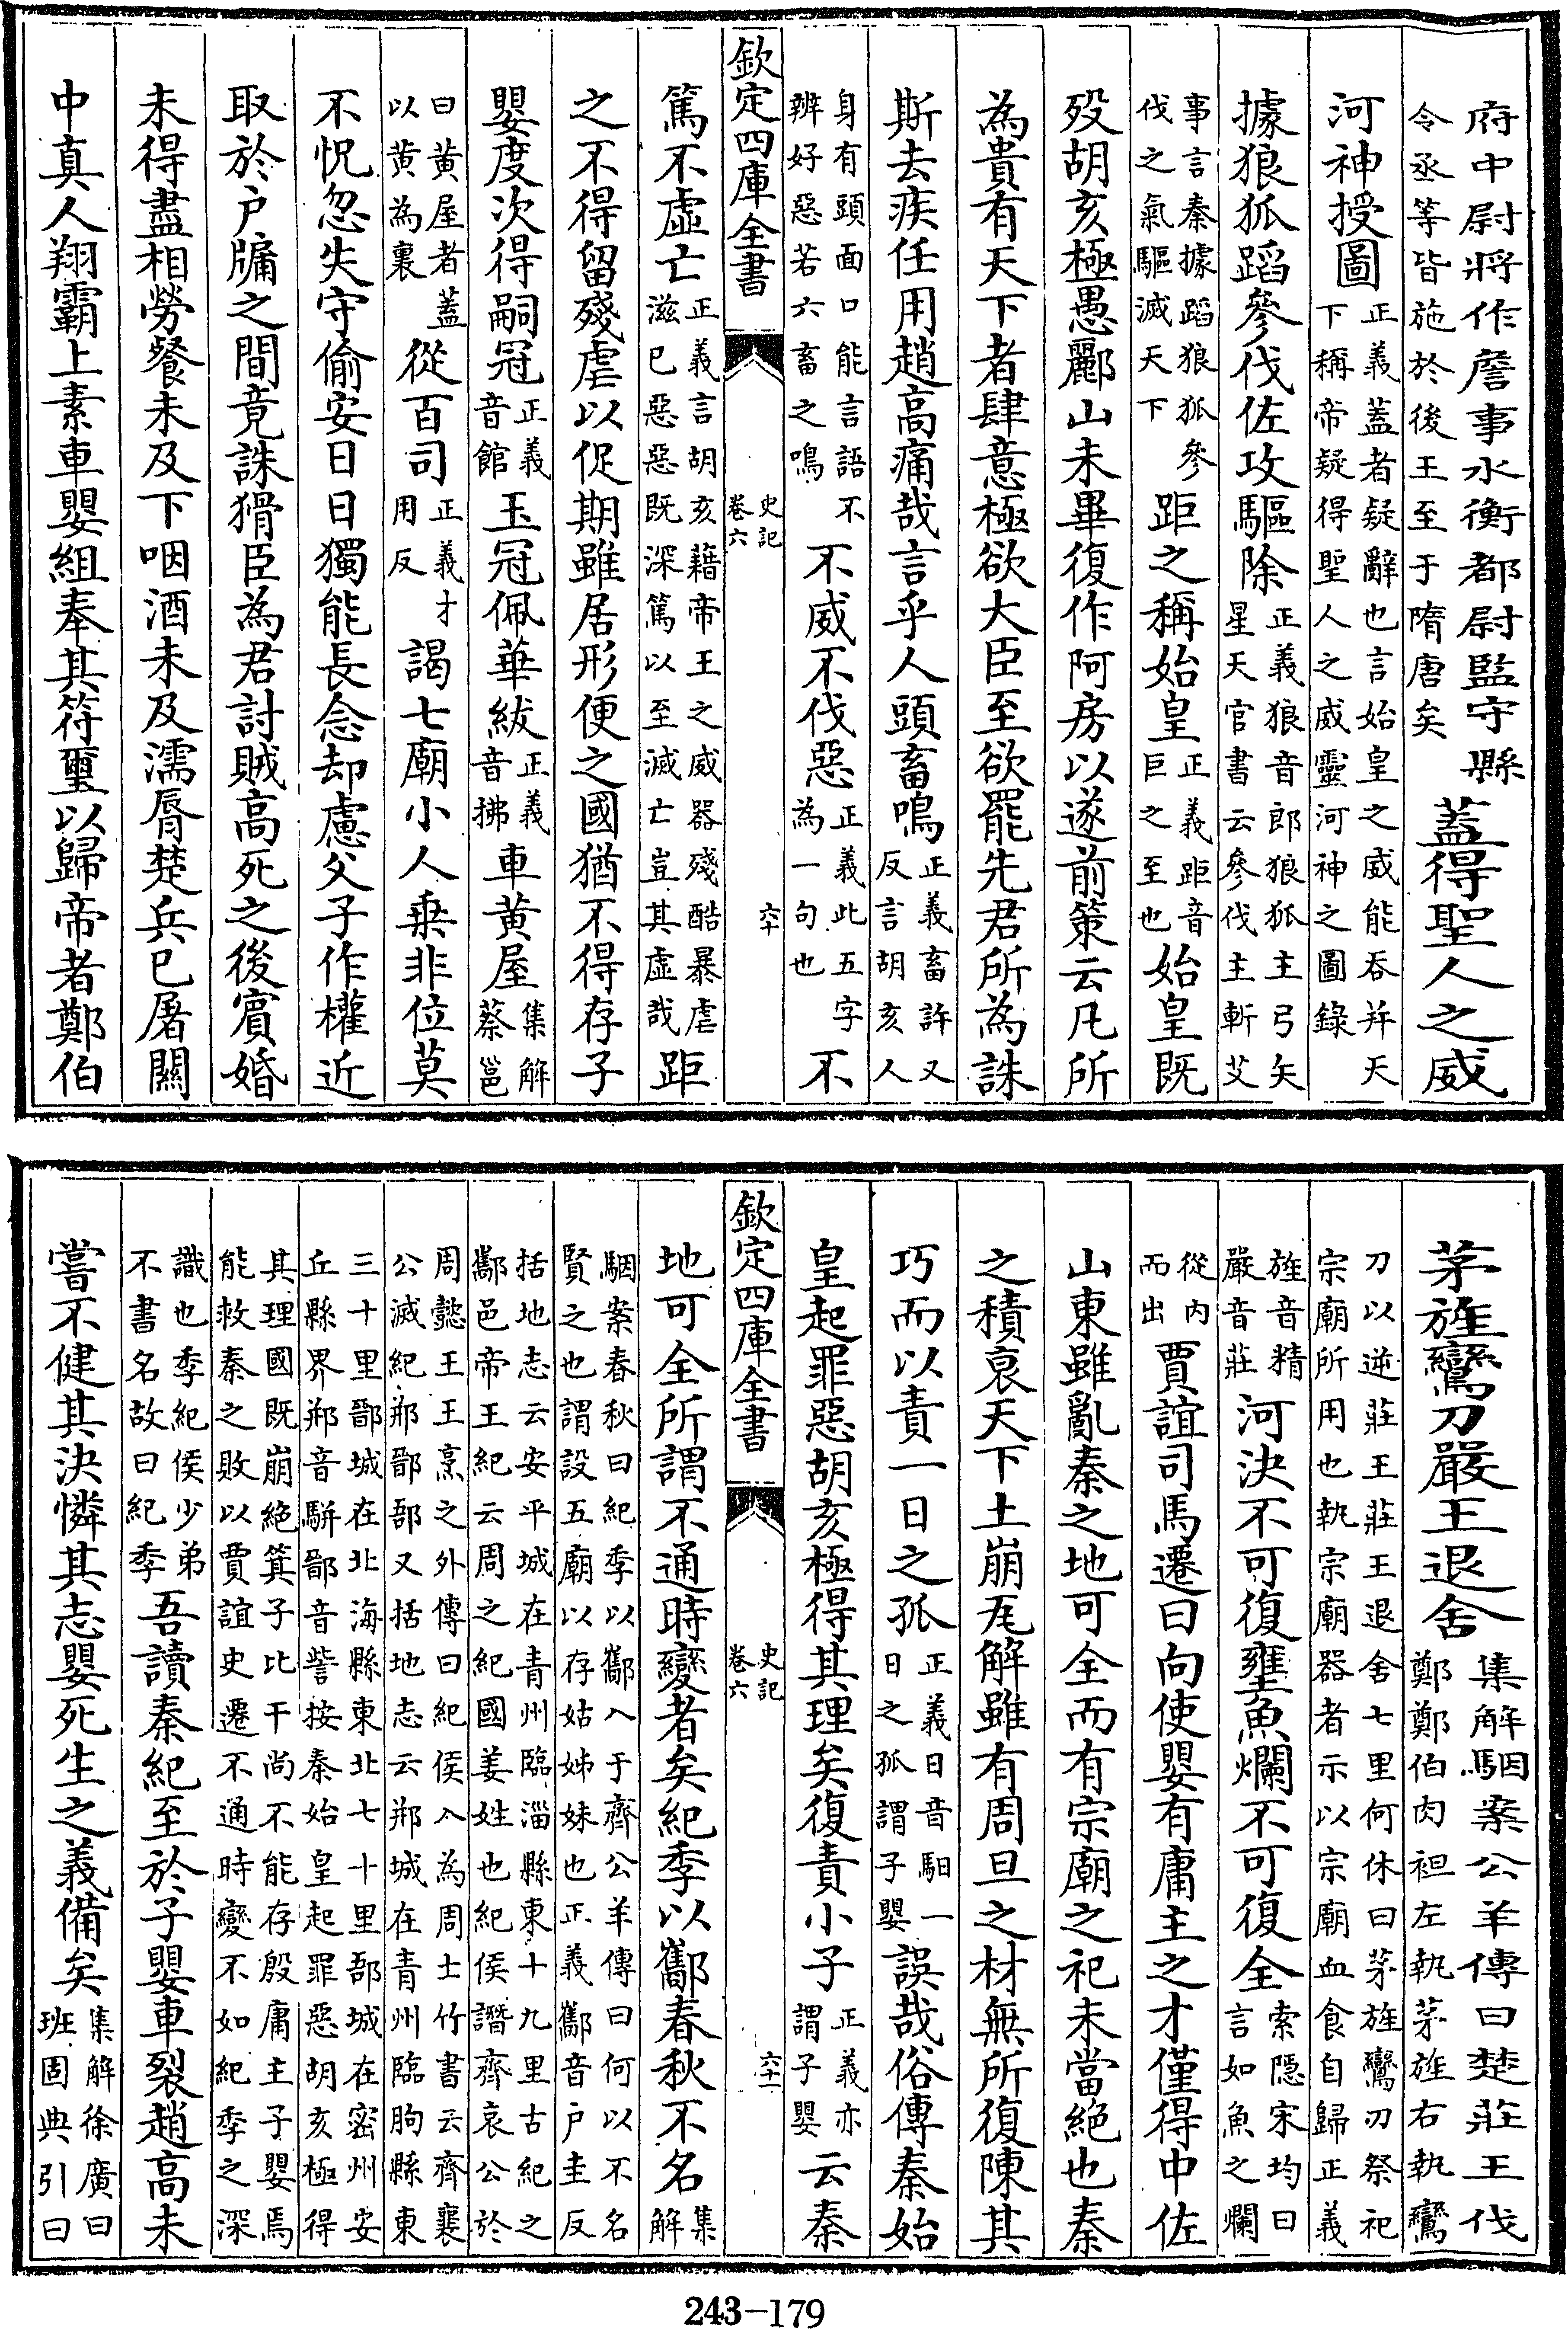 府中尉將作詹事水衡都尉監守縣令丞等皆施於後王至于隋唐矣蓋得聖人之威
河神授圖正義蓋者疑辭也言始皇之威能吞并天下稱帝疑得聖人之威靈河神之圖錄
據狼狐蹈參伐佐攻驅除正義狼音郎狼狐主弓矢星天官書云參伐主斬艾
事言秦據蹈狼狐參伐之氣驅滅天下距之稱始皇正義距音巨之至也始皇既
歿胡亥極愚酈山未畢復作阿房以遂前策云凡所
為貴有天下者肆意極欲大臣至欲罷先君所為誅
斯去疾任用趙高痛哉言乎人頭畜鳴正義畜許又反言胡亥人
身有頭面口能言語不辨好惡若六畜之鳴不威不伐惡正義此五字為一句也不
欽定四庫全書 史記卷六 六十
篤不虛亡正義言胡亥藉帝王之威器殘酷暴虐滋已惡惡既深篤以至滅亡豈其虛哉距
之不得留殘虐以促期雖居形便之國猶不得存子
嬰度次得嗣冠正義音館玉冠佩華紱正義音拂車黃屋集解蔡邕
曰黃屋者蓋以黃為裏從百司正義才用反謁七廟小人乗非位莫
不怳忽失守偷安日日獨能長念却慮父子作權近
取於戶牖之間竟誅猾臣為君討賊高死之後賓婚
未得盡相勞餐未及下咽酒未及濡脣楚兵已屠關
中真人翔霸上素車嬰組奉其符璽以歸帝者鄭伯
茅旌鸞刀嚴王退舍集解駰案公羊傳曰楚莊王伐鄭鄭伯肉袒左執茅旌右執鸞
刀以逆莊王莊王退舍七里何休曰茅旌鸞刀祭祀宗廟所用也執宗廟器者示以宗廟血食自歸正義
旌音精嚴音莊河決不可復壅魚爛不可復全索隱宋均曰言如魚之爛
從内而出賈誼司馬遷曰向使嬰有庸主之才僅得中佐
山東雖亂秦之地可全而有宗廟之祀未當絕也秦
之積衰天下土崩瓦解雖有周旦之材無所復陳其
巧而以責一日之孤正義日音馹一日之孤謂子嬰誤哉俗傳秦始
皇起罪惡胡亥極得其理矣復責小子正義亦謂子嬰云秦
欽定四庫全書 史記卷六 六十一
地可全所謂不通時變者矣紀季以酅春秋不名集解
駰案春秋曰紀季以酅入于齊公羊傳曰何以不名賢之也謂設五廟以存姑姊妹也正義酅音戶圭反
括地志云安平城在青州臨淄縣東十九里古紀之酅邑帝王紀云周之紀國姜姓也紀侯譖齊哀公於
周懿王王烹之外傳曰紀侯入為周士竹書云齊襄公滅紀郱鄑郚又括地志云郱城在青州臨朐縣東
三十里鄑城在北海縣東北七十里郚城在密州安丘縣界郱音駢鄑音訾按秦始皇起罪惡胡亥極得
其理國既崩絕箕子比干尚不能存殷庸主子嬰焉能救秦之敗以賈誼史遷不通時變不如紀季之深
識也季紀侯少弟不書名故曰紀季吾讀秦紀至於子嬰車裂趙高未
嘗不健其決憐其志嬰死生之義備矣集解徐廣曰班固典引曰
243-179